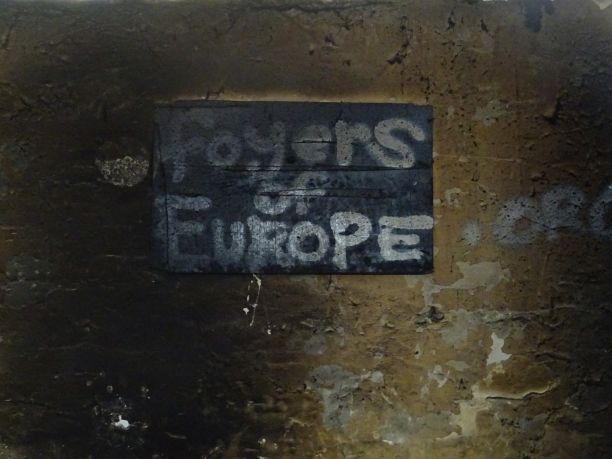 Foyers
of
EUROPE
.ORG